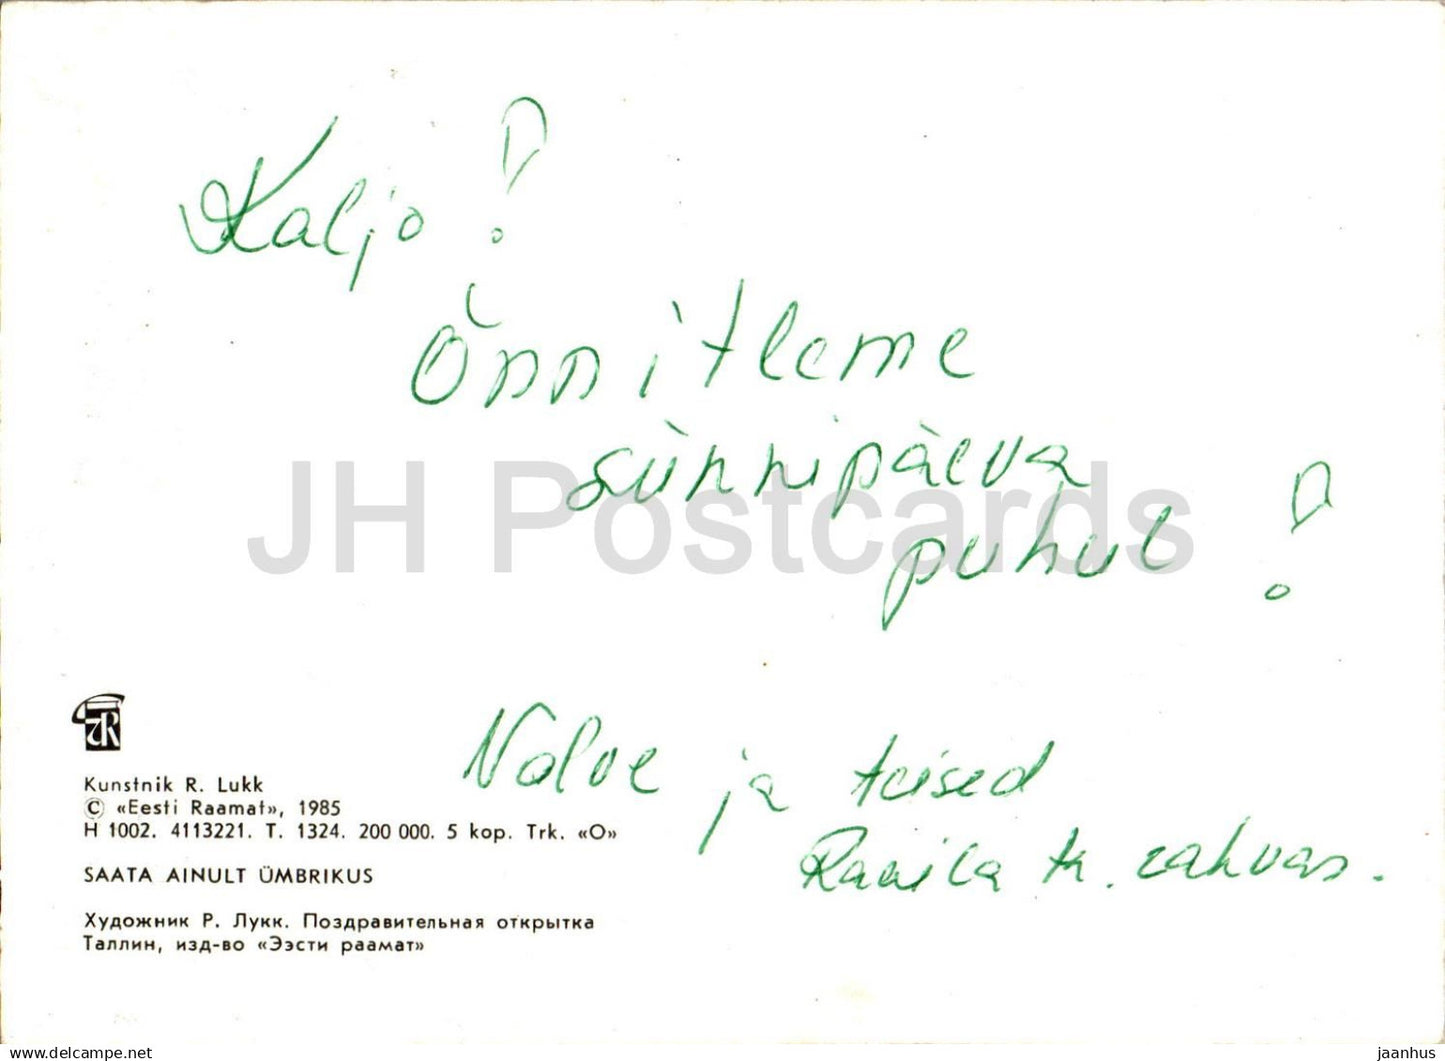 Kaljo!
Õnnitleme
sünnipäeva
puhul!
JH Postcards
Nalve ja teised
Raavila tk. rahvas.
Kunstnik R. Lukk
© «Eesti Raamat», 1985
H 1002. 4113221. T. 1324. 200 000. 5 kop. Trk. «O»
SAATA AINULT ÜMBRIKUS
Художник Р. Лукк. Поздравительная открытка
Таллин, изд-во «Ээсти раамат»
hippostcard.com
jaanhus